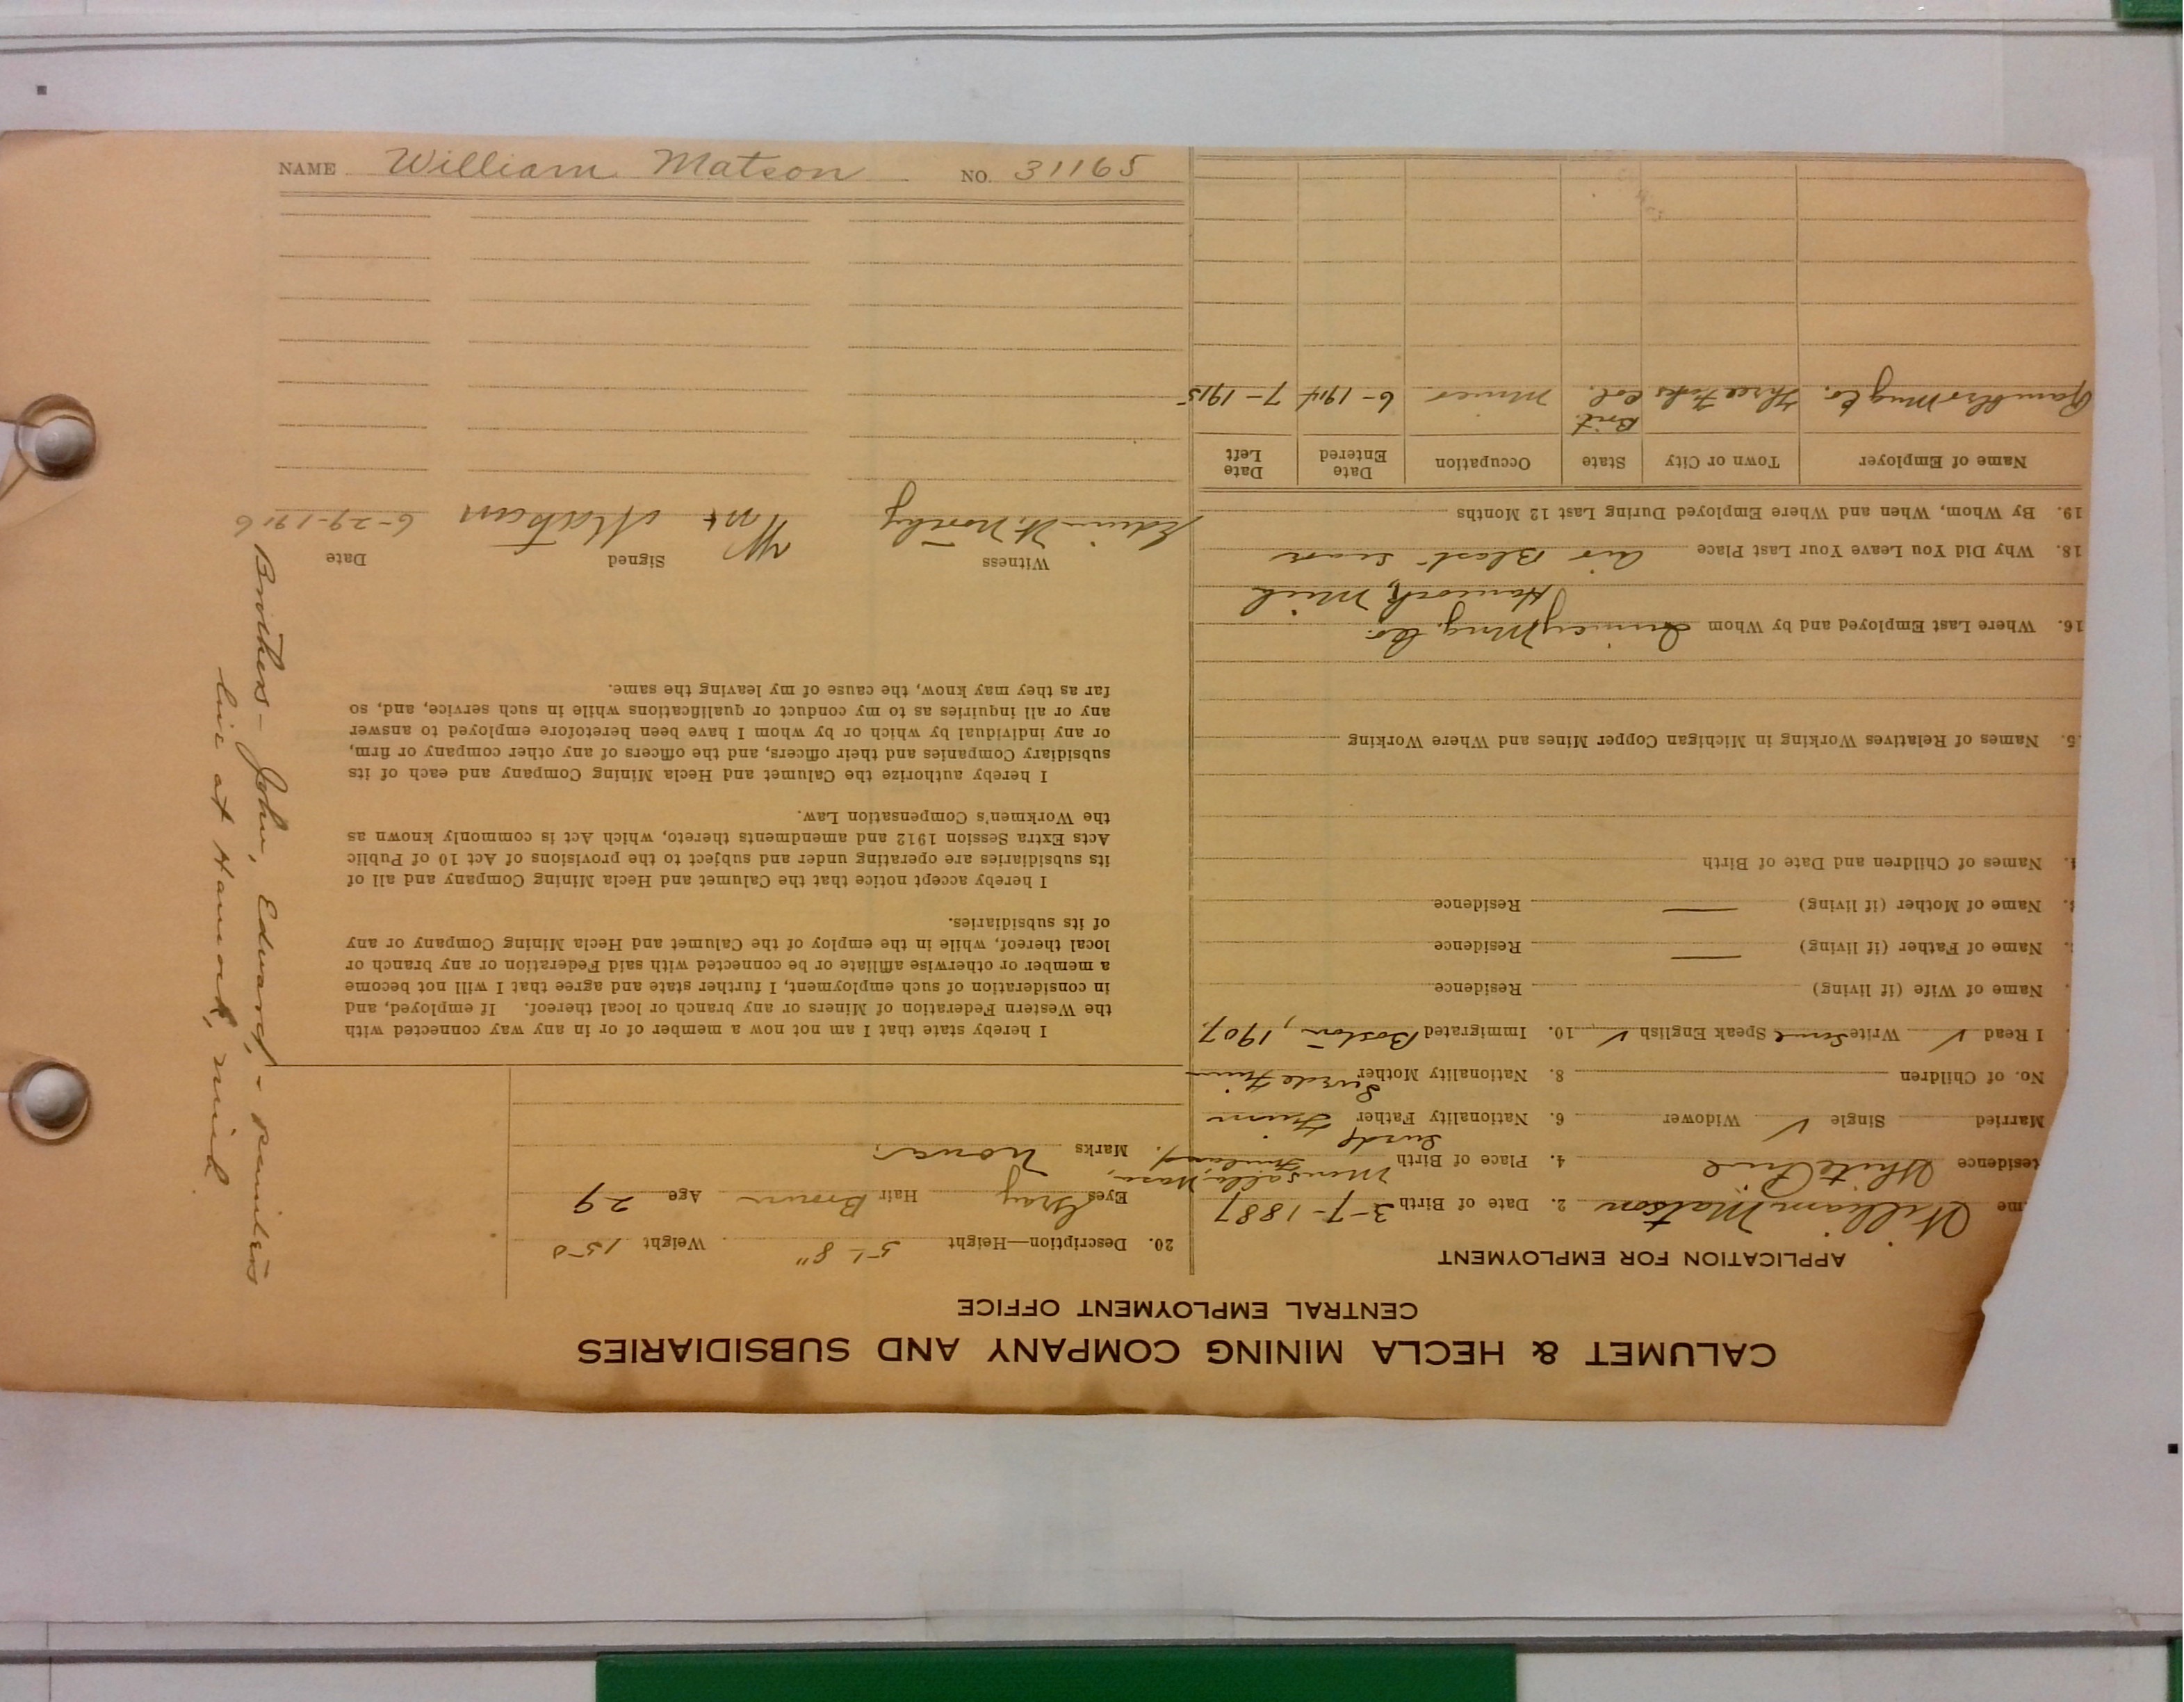 CALUMET & HECLA MINING COMPANY AND SUBSIDIARIES
CENTRAL EMPLOYMENT OFFICE
APPLICATION FOR EMPLOYMENT
me William Matson 2. Date of Birth 3-7-1887
Residence White Pine 4. Place of Birth Finland
Married Single V Widower 6. Nationality Father Swede Finn
No. of Children 8. Nationality Mother Swede Finn
I Read V Write Some Speak English V 10. Immigrated Boston, 1907.
Name of Wife (if living) Residence
Name of Father (if living) — Residence
Name of Mother (if living) — Residence
Names of Children and Date of Birth
5. Names of Relatives Working in Michigan Copper Mines and Where Working
16. Where Last Employed and by Whom Quincy Mng. Co.
Hancock, Mich
18. Why Did You Leave Your Last Place Air Blast scare
19. By Whom, When and Where Employed During Last 12 Months
Name of Employer Town or City State Occupation Date Entered Date Left
Rambler Mng Co. Three Forks Brit. Col. Miner 6-1914 7-1915
20. Description—Height 5'-8" Weight 150
Eyes Gray Hair Brown Age 29
Marks
I hereby state that I am not now a member of or in any way connected with
the Western Federation of Miners or any branch or local thereof. If employed, and
in consideration of such employment, I further state and agree that I will not become
a member or otherwise affiliate or be connected with said Federation or any branch or
local thereof, while in the employ of the Calumet and Hecla Mining Company or any
of its subsidiaries.
I hereby accept notice that the Calumet and Hecla Mining Company and all of
its subsidiaries are operating under and subject to the provisions of Act 10 of Public
Acts Extra Session 1912 and amendments thereto, which Act is commonly known as
the Workmen's Compensation Law.
I hereby authorize the Calumet and Hecla Mining Company and each of its
subsidiary Companies and their officers, and the officers of any other company or firm,
or any individual by which or by whom I have been heretofore employed to answer
any or all inquiries as to my conduct or qualifications while in such service, and, so
far as they may know, the cause of my leaving the same.
Witness Signed Date
Edwin W. Wm Matson 6-29-1916
NAME William Matson NO. 31165
Brothers - John, Edward, -
live at Hancock, Mich